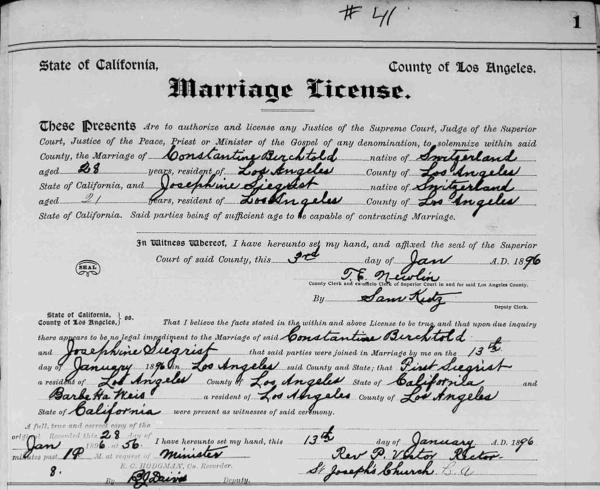 # 41
1
State of California, County of Los Angeles.
Marriage License.
These Presents Are to authorize and license any Justice of the Supreme Court, Judge of the Superior
Court, Justice of the Peace, Priest or Minister of the Gospel of any denomination, to solemnize within said
County, the Marriage of Constantine Berchtold native of Switzerland
aged 28 years, resident of Los Angeles County of Los Angeles
State of California, and Josephine Siegrist native of Switzerland
aged 21 years, resident of Los Angeles County of Los Angeles
State of California. Said parties being of sufficient age to be capable of contracting Marriage.
In Witness Whereof, I have hereunto set my hand, and affixed the seal of the Superior
Court of said County, this 3rd day of Jan A.D. 1896
SEAL
T.E. Newlin
County Clerk and ex-officio Clerk of Superior Court in and for said Los Angeles County.
By Sam Kutz
Deputy Clerk.
State of California,
County of Los Angeles, } ss. That I believe the facts stated in the within and above License to be true, and that upon due inquiry
there appears to be no legal impediment to the Marriage of said Constantine Berchtold
and Josephine Siegrist that said parties were joined in Marriage by me on the 13th
day of January 1896 in Los Angeles said County and State; that Siegrist
a resident of Los Angeles County of Los Angeles State of California and
Weis a resident of Los Angeles County of Los Angeles
State of California were present as witnesses of said ceremony.
A full, true and correct copy of the
original. Recorded this 28 day of
Jan 1896, 56 I have hereunto set my hand, this 13th day of January A.D. 1896
minutes past 1 P. M. at request of Minister Rev P. Rector
8. E. C. HODGMAN, Co. Recorder. St Joseph's Church L.A
By Deputy.